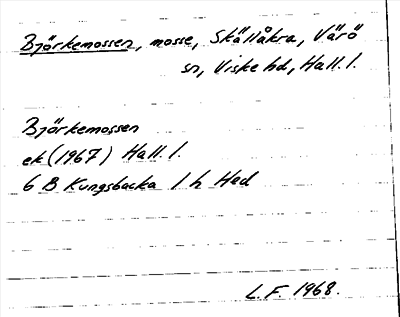 Björkemossen, mosse, Skällåkra, Värö
sn, Viske hd, Hall. l.
Björkemossen
ek (1967) Hall. l.
6 B Kungsbacka 1 h Hed
L.F. 1968.